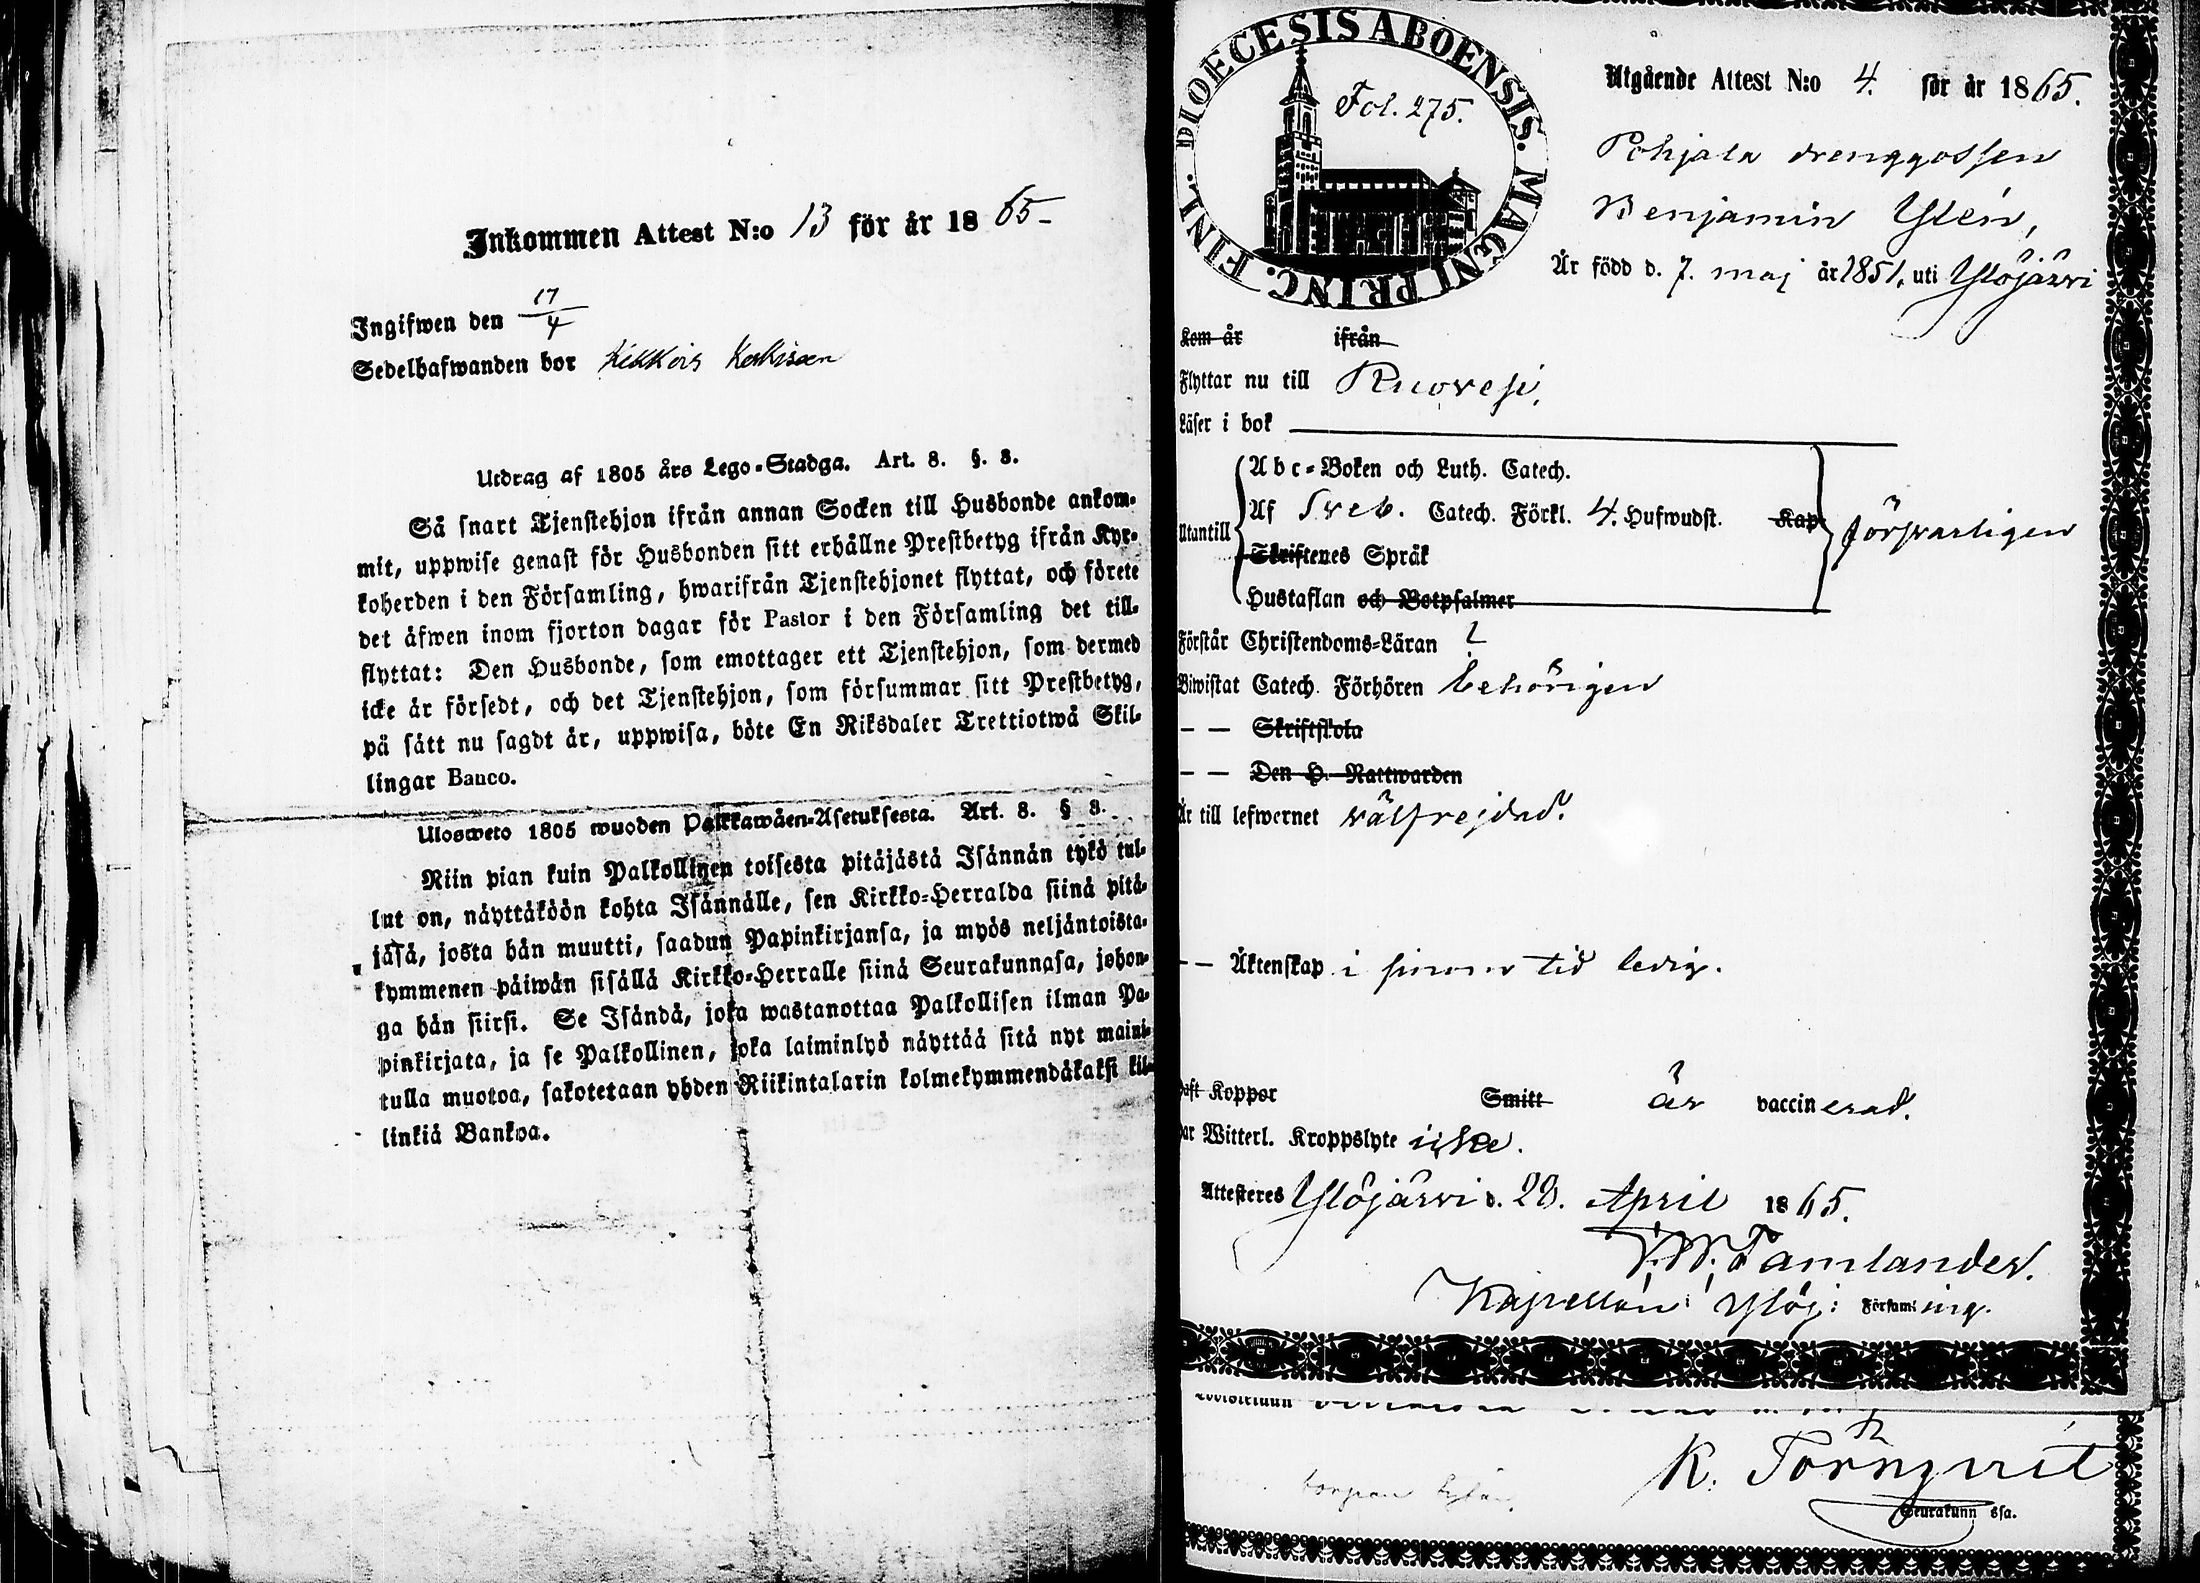 Inkommen Attest N:o 13 för år 1865-
Ingifwen den 17/4
Sedelhafwanden bor
Utdrag af 1805 års Lego-Stadga. Art. 8. §. 8.
Så snart Tjenstehjon ifrån annan Socken till Husbonde ankom-
mit, uppwise genast för Husbonden sitt erhållne Prestbetyg ifrån Kyr-
koherden i den Församling, hwarifrån Tjenstehjonet flyttat, och förete
det äfwen inom fjorton dagar för Pastor i den Församling det till-
flyttat: Den Husbonde, som emottager ett Tjenstehjon, som dermed
icke är försedt, och det Tjenstehjon, som försummar sitt Prestbetyg,
på sätt nu sagdt är, uppwisa, böte En Riksdaler Trettiotwå Skil-
lingar Banco.
Ulosweto 1805 wuoden Palkkawäen-Asetuksesta. Art. 8. § 8.
Niin pian kuin Palkollinen toisesta pitäjästä Isännän tykö tul-
lut on, näyttäköön kohta Isännälle, sen Kirkko-Herralda siinä pitä-
jäsä, josta hän muutti, saadun Papinkirjansa, ja myös neljäntoista-
kymmenen päiwän sisällä Kirkko-Herralle siinä Seurakunnasa, johon-
ga hän siirsi. Se Isändä, joka wastanottaa Palkollisen ilman Pa-
pinkirjata, ja se Palkollinen, joka laiminlyö näyttää sitä nyt maini-
tulla muotoa, sakotetaan yhden Riikintalarin kolmekymmendäkaksi kil-
linkiä Bankoa.
FINL. DIOECESIS ABOENSIS. MAGNI PRINC.
Fol. 275.
Utgående Attest N:o 4. för år 1865.
Pohjala drenggossen
Benjamin Ylén,
Är född d. 7. maj år 1851, uti Ylöjärvi
Kom år ifrån
Flyttar nu till Ruovesi,
Läser i bok
Utantill
Abc-Boken och Luth. Catech.
Af Sveb. Catech. Förkl. 4. Hufwudst. Kap
Skriftenes Språk
Hustaflan och Botpsalmer
försvarligen
Förstår Christendoms-Läran
Biwistat Catech. Förhören behörigen
— — Skriftskola
— — Den H. Nattwarden
Är till lefwernet välfrejdad.
— — Äktenskap i sinom tid ledig.
haft Koppor Smitt är vaccinerad.
har Witterl. Kroppslyte icke.
Attesteres Ylöjärvi d. 20. April 1865.
Tamlander.
Kapellan i Ylöj: Församling.
K. Törnqvist
Seurakunnassa.